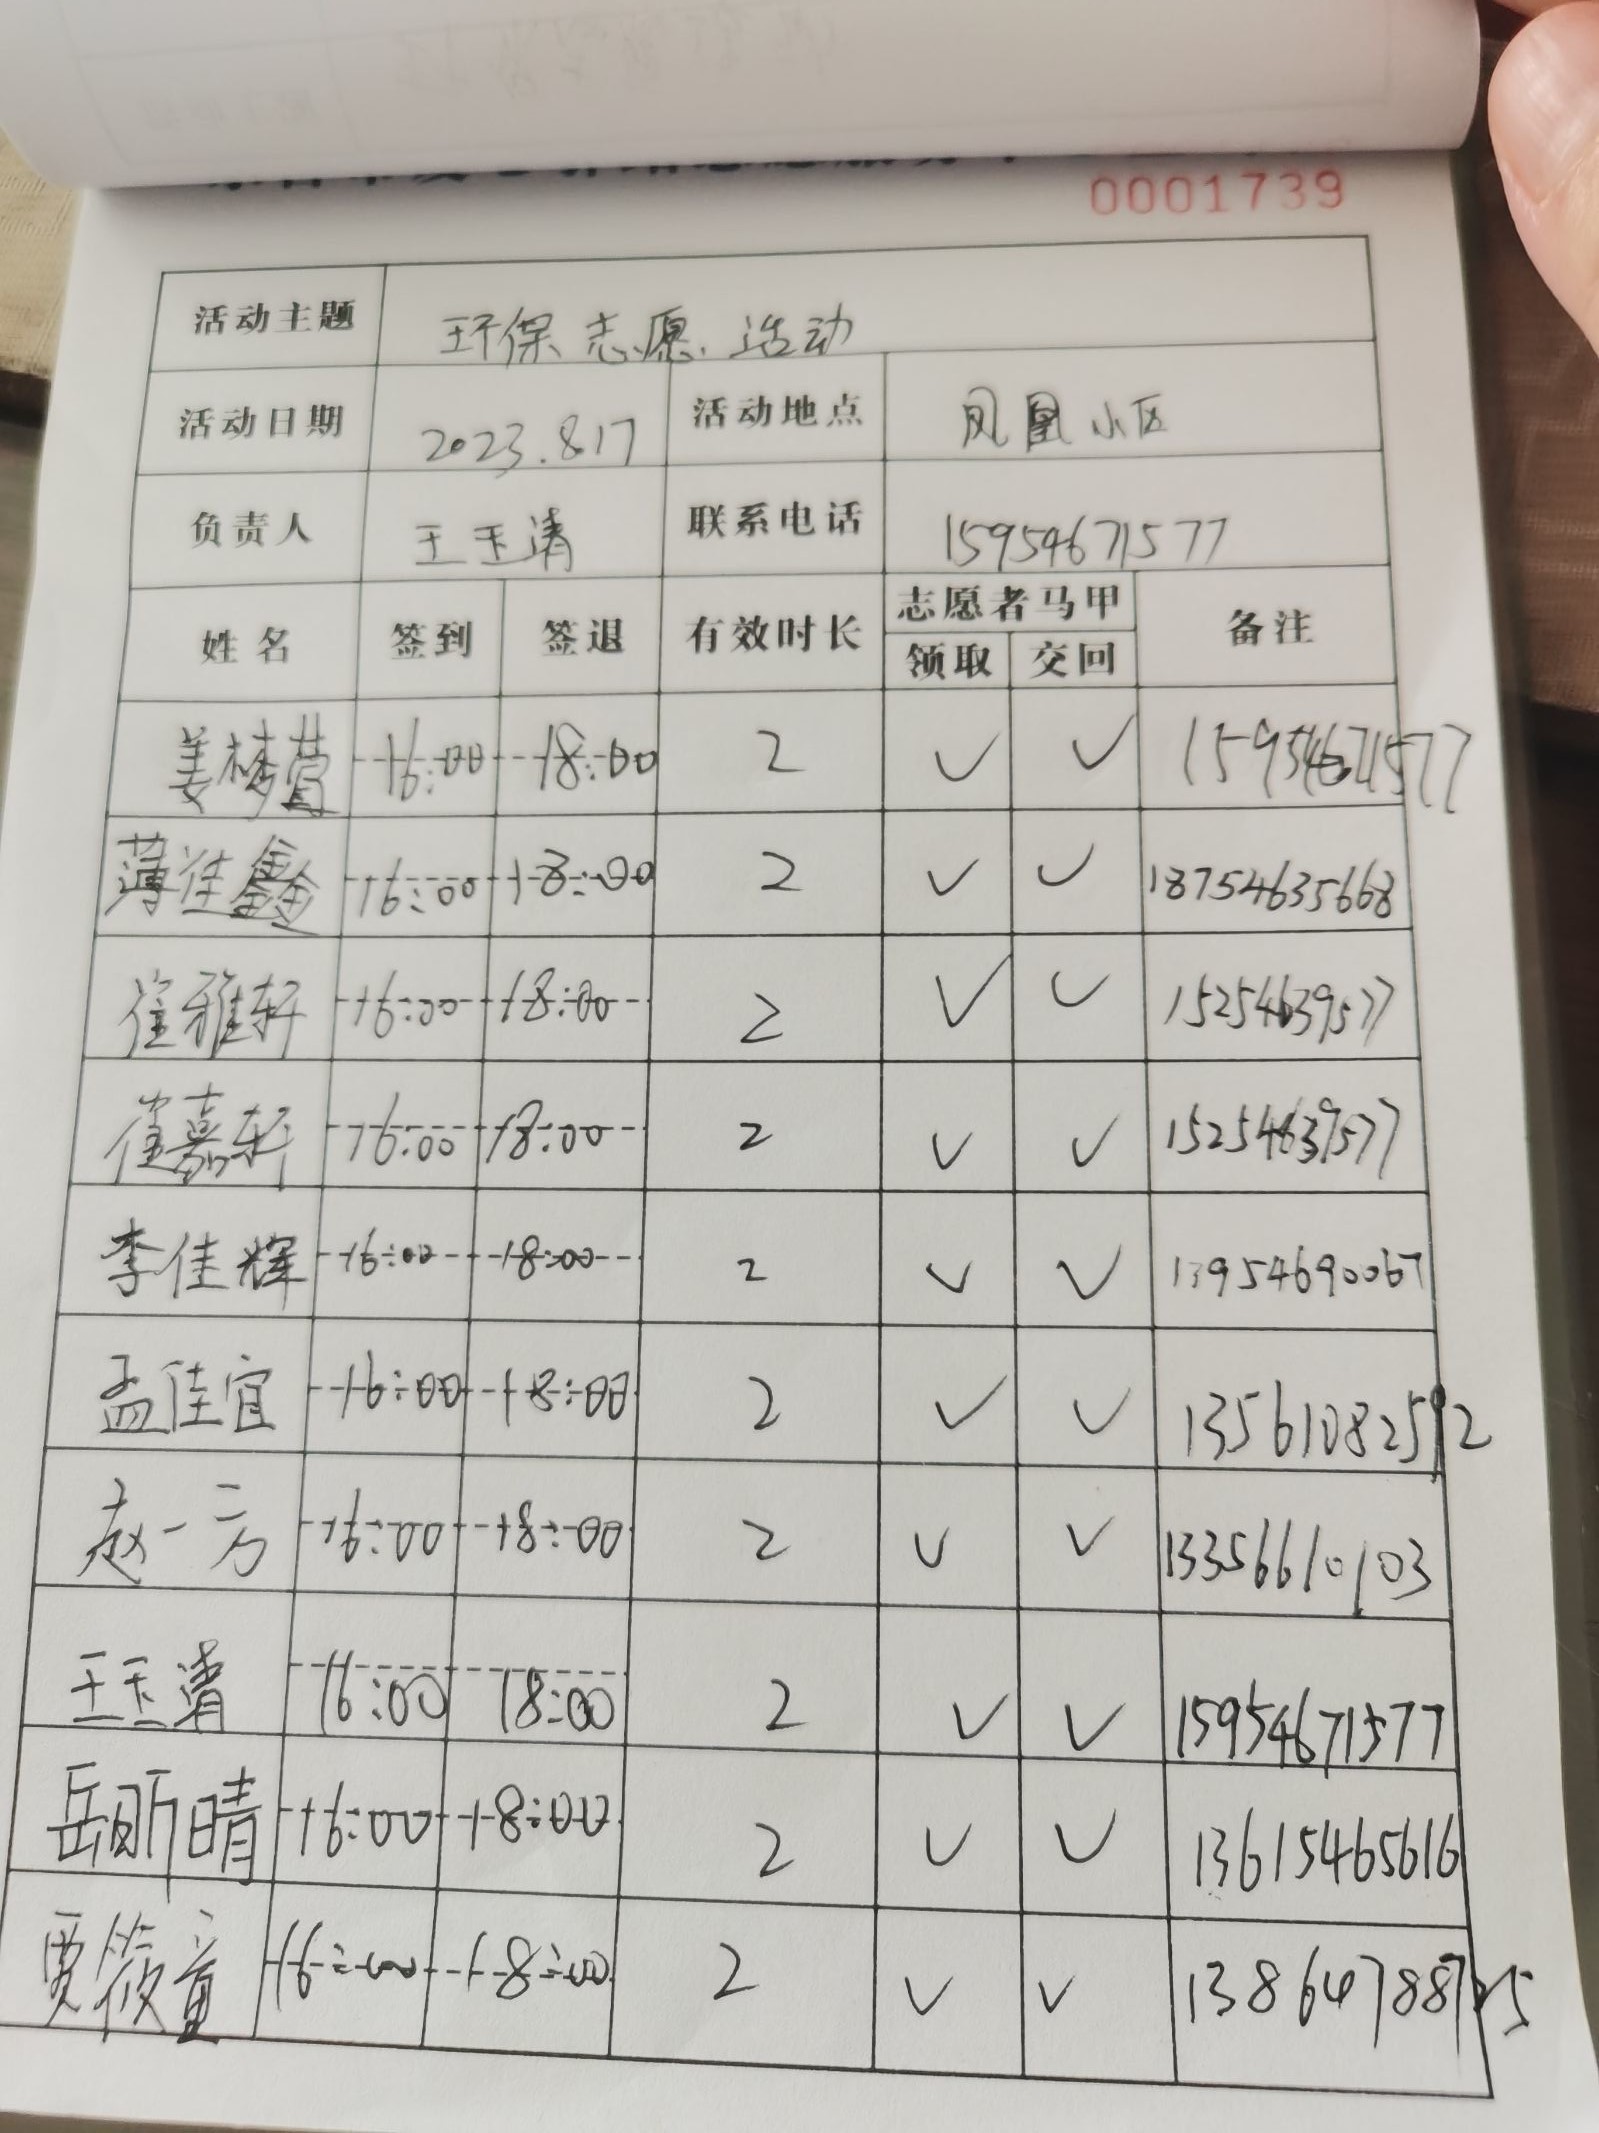 0001739
活动主题 环保志愿活动
活动日期 2023.8.17 活动地点 凤凰小区
负责人 王玉清 联系电话 15954671577
姓名 签到 签退 有效时长 志愿者马甲 备注
领取 交回
姜梦萱 16:00 18:00 2 ✓ ✓ 15954671577
薄佳鑫 16:00 18:00 2 ✓ ✓ 18754635668
崔雅轩 16:00 18:00 2 ✓ ✓ 15254639577
崔嘉轩 16:00 18:00 2 ✓ ✓ 15254639577
李佳辉 16:00 18:00 2 ✓ ✓ 13954690067
孟佳宜 16:00 18:00 2 ✓ ✓ 13561082592
赵一方 16:00 18:00 2 ✓ ✓ 13356610103
王玉清 16:00 18:00 2 ✓ ✓ 15954671577
岳昕晴 16:00 18:00 2 ✓ ✓ 13615465616
贾筱童 16:00 18:00 2 ✓ ✓